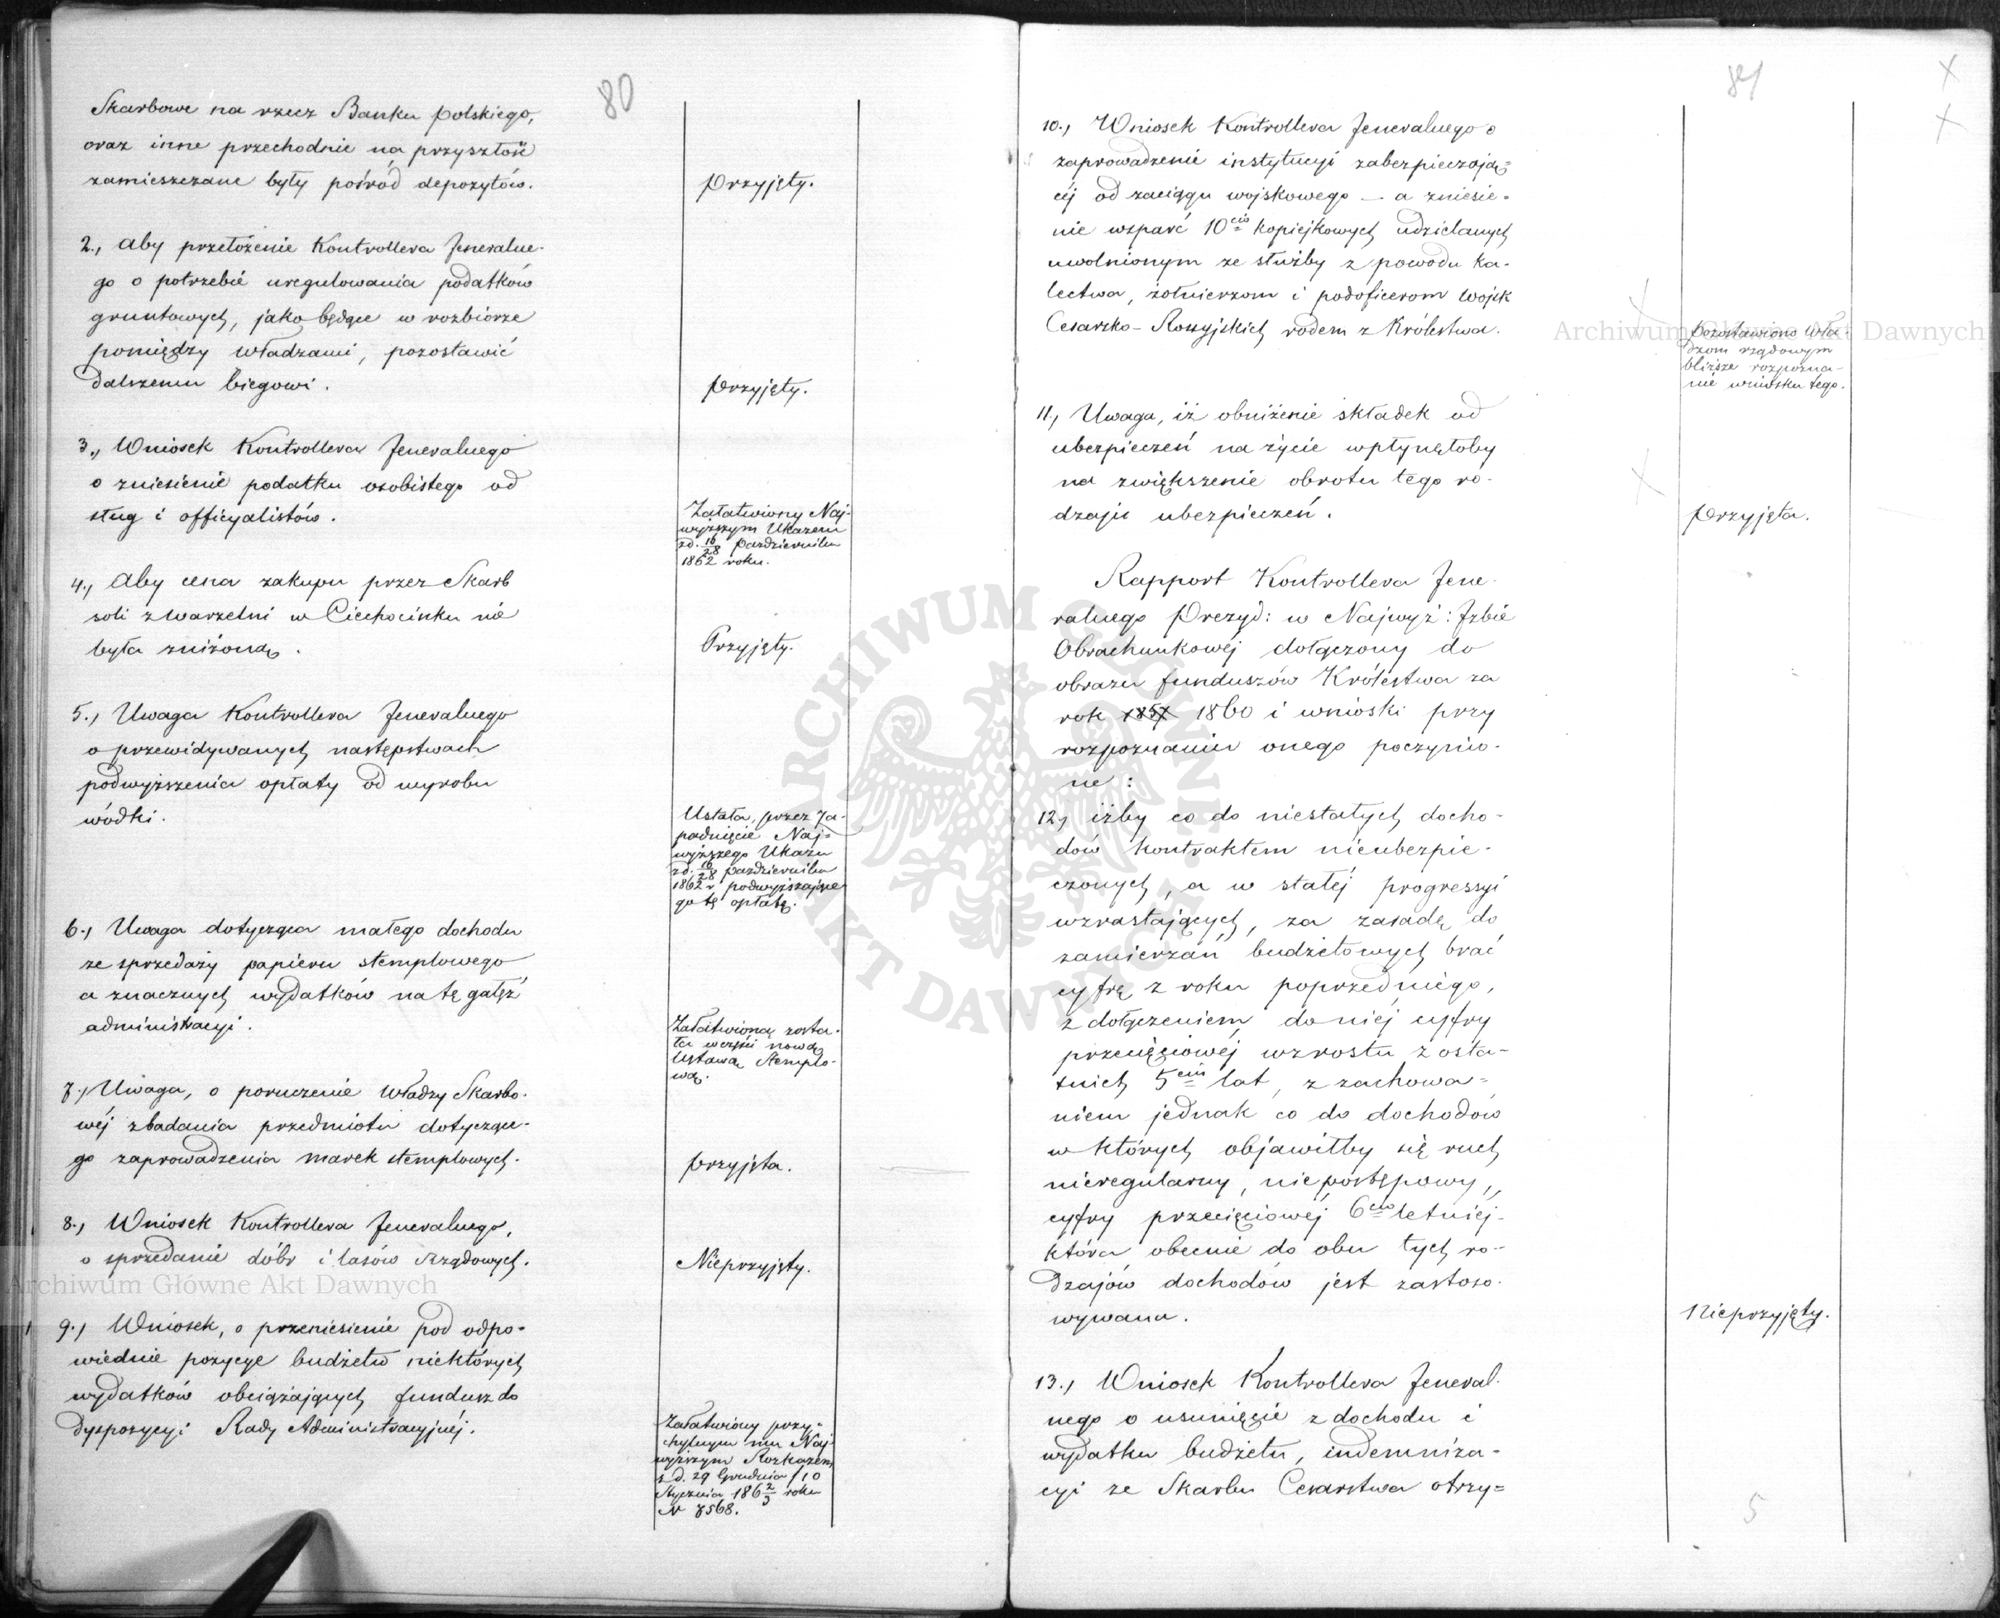 80
Skarbowe na rzecz Banku polskiego,
oraz inne przechodnie na przyszłość
zamieszczane były pośród depozytów.
Przyjęty.
2., Aby przełożenie Kontrollera Jeneralne-
go o potrzebie uregulowania podatków
gruntowych, jako będące w rozbiorze
pomiędzy władzami, pozostawić
dalszemu biegowi.
Przyjęty.
3., Wniosek Kontrollera Jeneralnego
o zniesienie podatku osobistego od
sług i officyalistów.
Załatwiony Naj-
wyższym Ukazem
z d. 16/28 Października
1862 roku.
4., Aby cena zakupu przez Skarb
soli z warzelni w Ciechocinku nie
była zniżoną.
Przyjęty.
5., Uwaga Kontrollera Jeneralnego
o przewidywanych następstwach
podwyższenia opłaty od wyrobu
wódki.
Ustała, przez Za-
padnięcie Naj-
wyższego Ukazu
z d. 16/28 Października
1862 r. podwyższające
go tę opłatę.
6., Uwaga dotycząca małego dochodu
ze sprzedaży papieru stemplowego
a znacznych wydatków na tę gałęź
administracyi.
Załatwioną zosta-
ła
nową
Ustawą Stemplo-
wą.
7., Uwaga, o poruczenie Władzy Skarbo-
wéj zbadania przedmiotu dotyczące-
go zaprowadzenia marek stemplowych.
Przyjęta.
8., Wniosek Kontrollera Jeneralnego,
o sprzedanie dóbr i lasów Rządowych.
Nieprzyjęty.
9., Wniosek, o przeniesienie pod odpo-
wiednie pozycye budżetu niektórych
wydatków obciążających fundusz do
dyspozycyi Rady Administracyjnéj.
Załatwiony przy-
chylnym mu Naj-
wyższym Rozkazem
z d. 29 Grudnia / 10
Stycznia 186 2/3 roku
N 7568.
81
10., Wniosek Kontrollera Jeneralnego o
zaprowadzenie instytucyi zabezpieczają-
céj od zaciągu wojskowego — a zniesie-
nie wsparć 10cio kopiejkowych udzielanych
uwolnionym ze służby z powodu ka-
lectwa, żołnierzom i podoficerom wojsk
Cesarsko-Rossyjskich rodem z Królestwa.
Pozostawiono Wła-
dzom rządowym
bliższe rozpozna-
nie wniosku tego.
11., Uwaga, iż obniżenie składek od
ubezpieczeń na życie wpłynęłoby
na zwiększenie obrotu tego ro-
dzaju ubezpieczeń.
Przyjęta.
Rapport Kontrollera Jene-
ralnego Prezyd: w Najwyż: Izbie
Obrachunkowéj dołączony do
obrazu funduszów Królestwa za
rok 1860 i wnioski przy
rozpoznaniu onego poczynio-
ne:
12., iżby co do niestałych docho-
dów kontraktem nieubezpie-
czonych, a w stałéj progressyi
wzrastających, za zasadę do
zamierzań budżetowych brać
cyfrę z roku poprzedniego,
z dołączeniem do niéj cyfry
przecięciowéj wzrostu z osta-
tnich 5ciu lat, z zachowa-
niem jednak co do dochodów
w których objawiłby się ruch
nieregularny, niepostępowy,
cyfry przecięciowéj 6cio letniéj
która obecnie do obu tych ro-
dzajów dochodów jest zastoso-
wywana.
Nieprzyjęty.
13., Wniosek Kontrollera Jeneral-
nego o usunięcie z dochodu i
wydatku budżetu, indemniza-
cyi ze Skarbu Cesarstwa otrzy-
5
Archiwum Główne Akt Dawnych
Archiwum Główne Akt Dawnych
ARCHIWUM GŁÓWNE AKT DAWNYCH